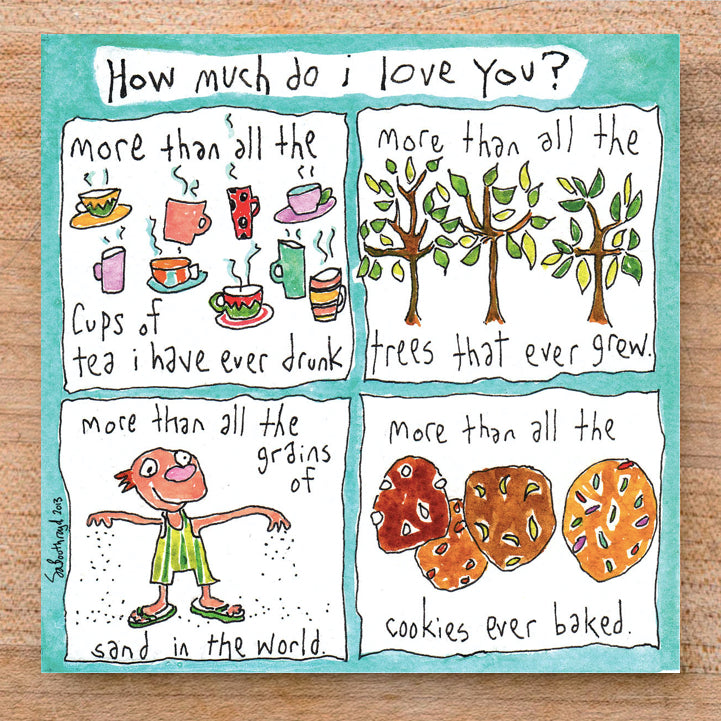 How much do i love You?
more than all the
Cups of
tea i have ever drunk
more than all the
trees that ever grew.
more than all the
grains
of
sand in the world.
more than all the
cookies ever baked.
SaBoothroyd 2013